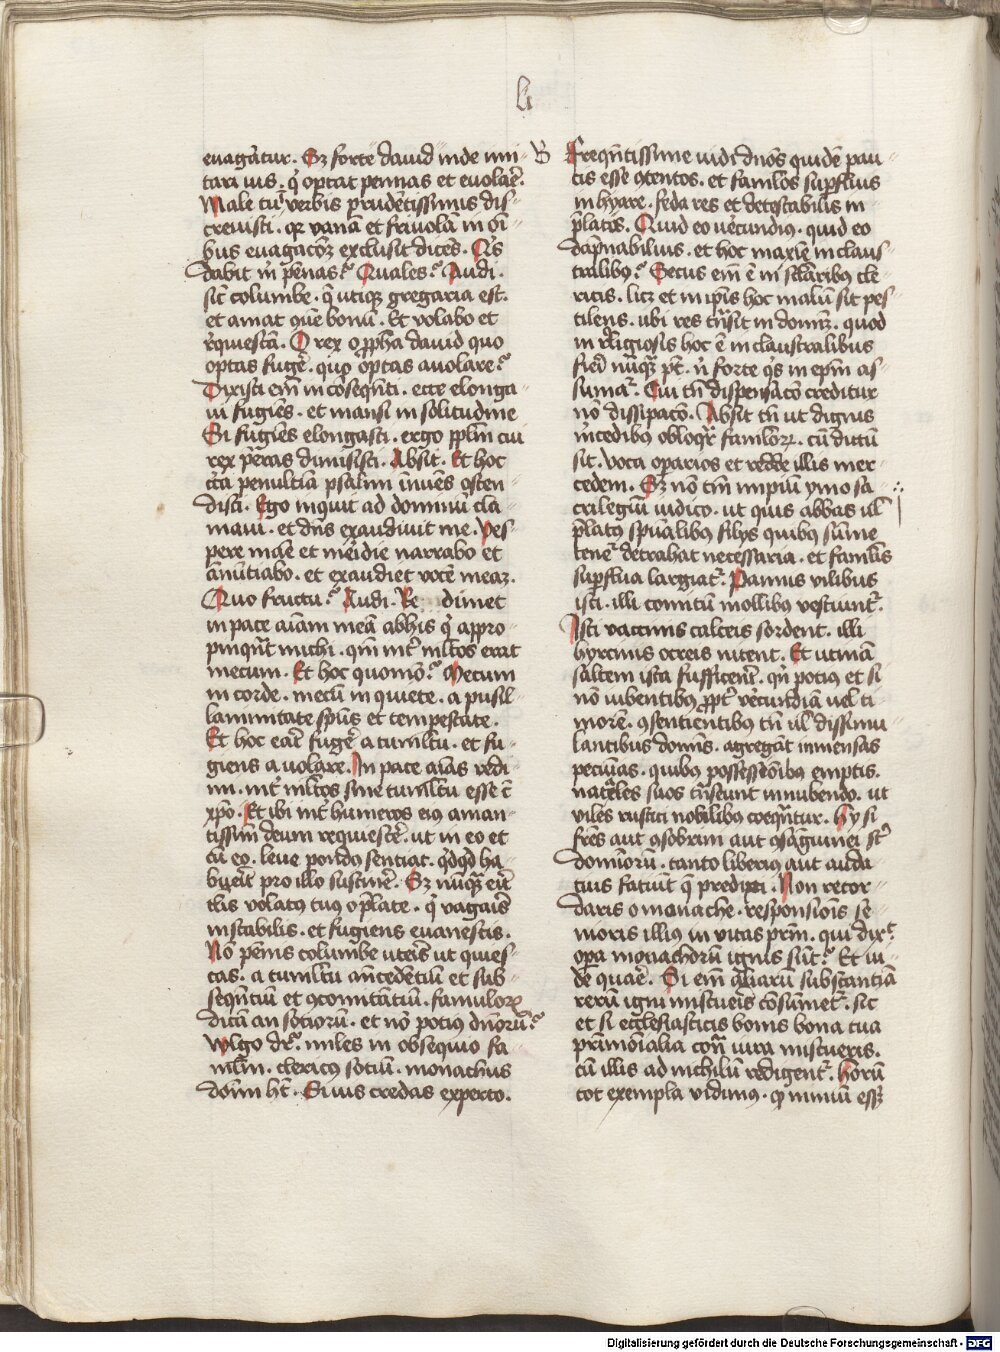 li
euagat̄ur. Sꝫ forte dauid inde imi
tari uis. qͥ optat pennas et euolar̄e.
Male tuͥ uerbis prudētissimis dis
creuisti. qꝛ vanā et friuolā in oī
bus euagacōꝫ exclusit dicēs. Qͥs
dabit m̄ pēnas? Quales? Audi.
sic̄ columbe. q̄ utiqꝫ gregaria est.
et amat quē bonū. Et volabo et
reͥquiescā. O rex o ꝓph̄a dauid quo
optas fugēr. quo optas auolare?
Dixisti em̄ in cōseqn̄ti. ecce elonga
ui fugiēs. et mansi in solitudine
Si fugiēs elongasti. ergo pplm̄ cui
rex p̄eras dimisisti. Absit. Et hoc
cc̄a penultīa psalmi īnuēs osten
disti. Ego inquit ad dominū cla
maui. et dn̄s exaudiuit me. Ves
pere māe et meͥidie narrabo et
ān̄ūtiabo. et exaudiet vocē meaꝫ.
Quo fructu? Audi. Re dimet
in pace aīam meā ab his qͥ appro
pinqūt michi. qm̄ int̄ ml̄tos erat
mecum. Et hoc quomō? Mecum
in corde. mecū in quiete. a pusil
lanimitate spūs et tempestate.
Et hoc eār fugēr a tumltu. et fu
giens auolare. In pace aīas redi
mi. int̄ ml̄tos sine tumltu esse ē
xpō. Et ibi int̄ humeros eiꝰ aman
tissim̄ deum requiescēr. ut in eo et
cū eo. leue pondꝰ sentiat. qͥdqͥd ha
buerit pro illo sustinēr. Sꝫ nūqͣꝫ erit
tlis volatꝰ tuꝰ o p̄late. qͥ vagaris
instabilis. et fugiens euanescis.
Nō pēnis columbe uteris ut quies
cas. a tumltu an̄cedētiū et sub
seqn̄tiū et ꝯcomitātiū. famulorꝫ
dicā an sociorū. et nō potius dn̄orū?
Vulgo dr̄. miles in obsequio fa
mlm̄. clericꝰ sociū. monachus
dom̄ ht̄. Si uis credas experto.
B Freqn̄tissime uidi dnōs quidē pau
cis esse ꝯtentos. et famlos supfluis
inhyare. feda res et detestabilis in
p̄latos. Quid eo uerecundiꝰ. quid eo
dāpnabilius. et hoc maxie in claus
tralibꝰ? Secus em̄ ē in sclaribꝰ cle
ricis. licꝫ et in ip̄is hoc malū sit pes
tilens. ubi res tn̄sit in domiꝫ. quod
in religiosis hoc ē in claustralibus
fieri nūqͣꝫ pt̄. n̄ forte qͥs in epm̄ as
sumat̄. Cui tn̄ dispensaco creditur
nō dissipacō. Absit tn̄ ut dignis
mͥcedibꝰ obloqͣr famlorꝫ. cū dictū
sit. voca oparios et redde illis mer
cedem. Sꝫ nō tm̄ impiū ymo sa
crilegiū iudico. ut quis abbas ul̄
p̄latꝰ spūalibꝰ filijs quibꝰ sūme
tenet̄ detrahat necessaria. et famlis
supflua largiat̄. Pannis vilibus
isti. illi comitū mollibꝰ vestiunt̄.
Isti vaccinis calceis sordent. illi
hyrcinis ocreis nitent. Et utinā
saltem ista sufficerēt. qͥn potius et si
nō iubentibꝰ ꝓpt̄ uerecundiā uel ti
morē. ꝯsentientibꝰ tn̄ ul̄ dissimu
lantibus domīs. agregāt inmensas
pecunias. quibꝰ possessiōibꝰ emptis.
nat̄eles suos tn̄seunt innubendo. ut
viles rustici nobilibꝰ coeqn̄tur. Hij si
fr̄es aut ꝯsobrini aut ꝯsāguinei st̄
dominorū. tanto liberiꝰ aut auda
cius faciūt q̄ predixi. Non recor
daris o monache. responsiois se
moris illiꝰ in vitas pr̄m. qui dixͭ.
opa monachorū ignis sūt? Et ui
de quare. Si em̄ aliarū substantiā
rerū igni miscueris cōsūmet̄. sic
et si ecclesiasticis bonis bona tua
p̄rimōnialia con̄ iura miscueris.
cū illis ad nichilū redigent̄. Horū
tot exempla vidimꝰ. qͥ nimiū essꝫ
Digitalisierung gefördert durch die Deutsche Forschungsgemeinschaft - DFG